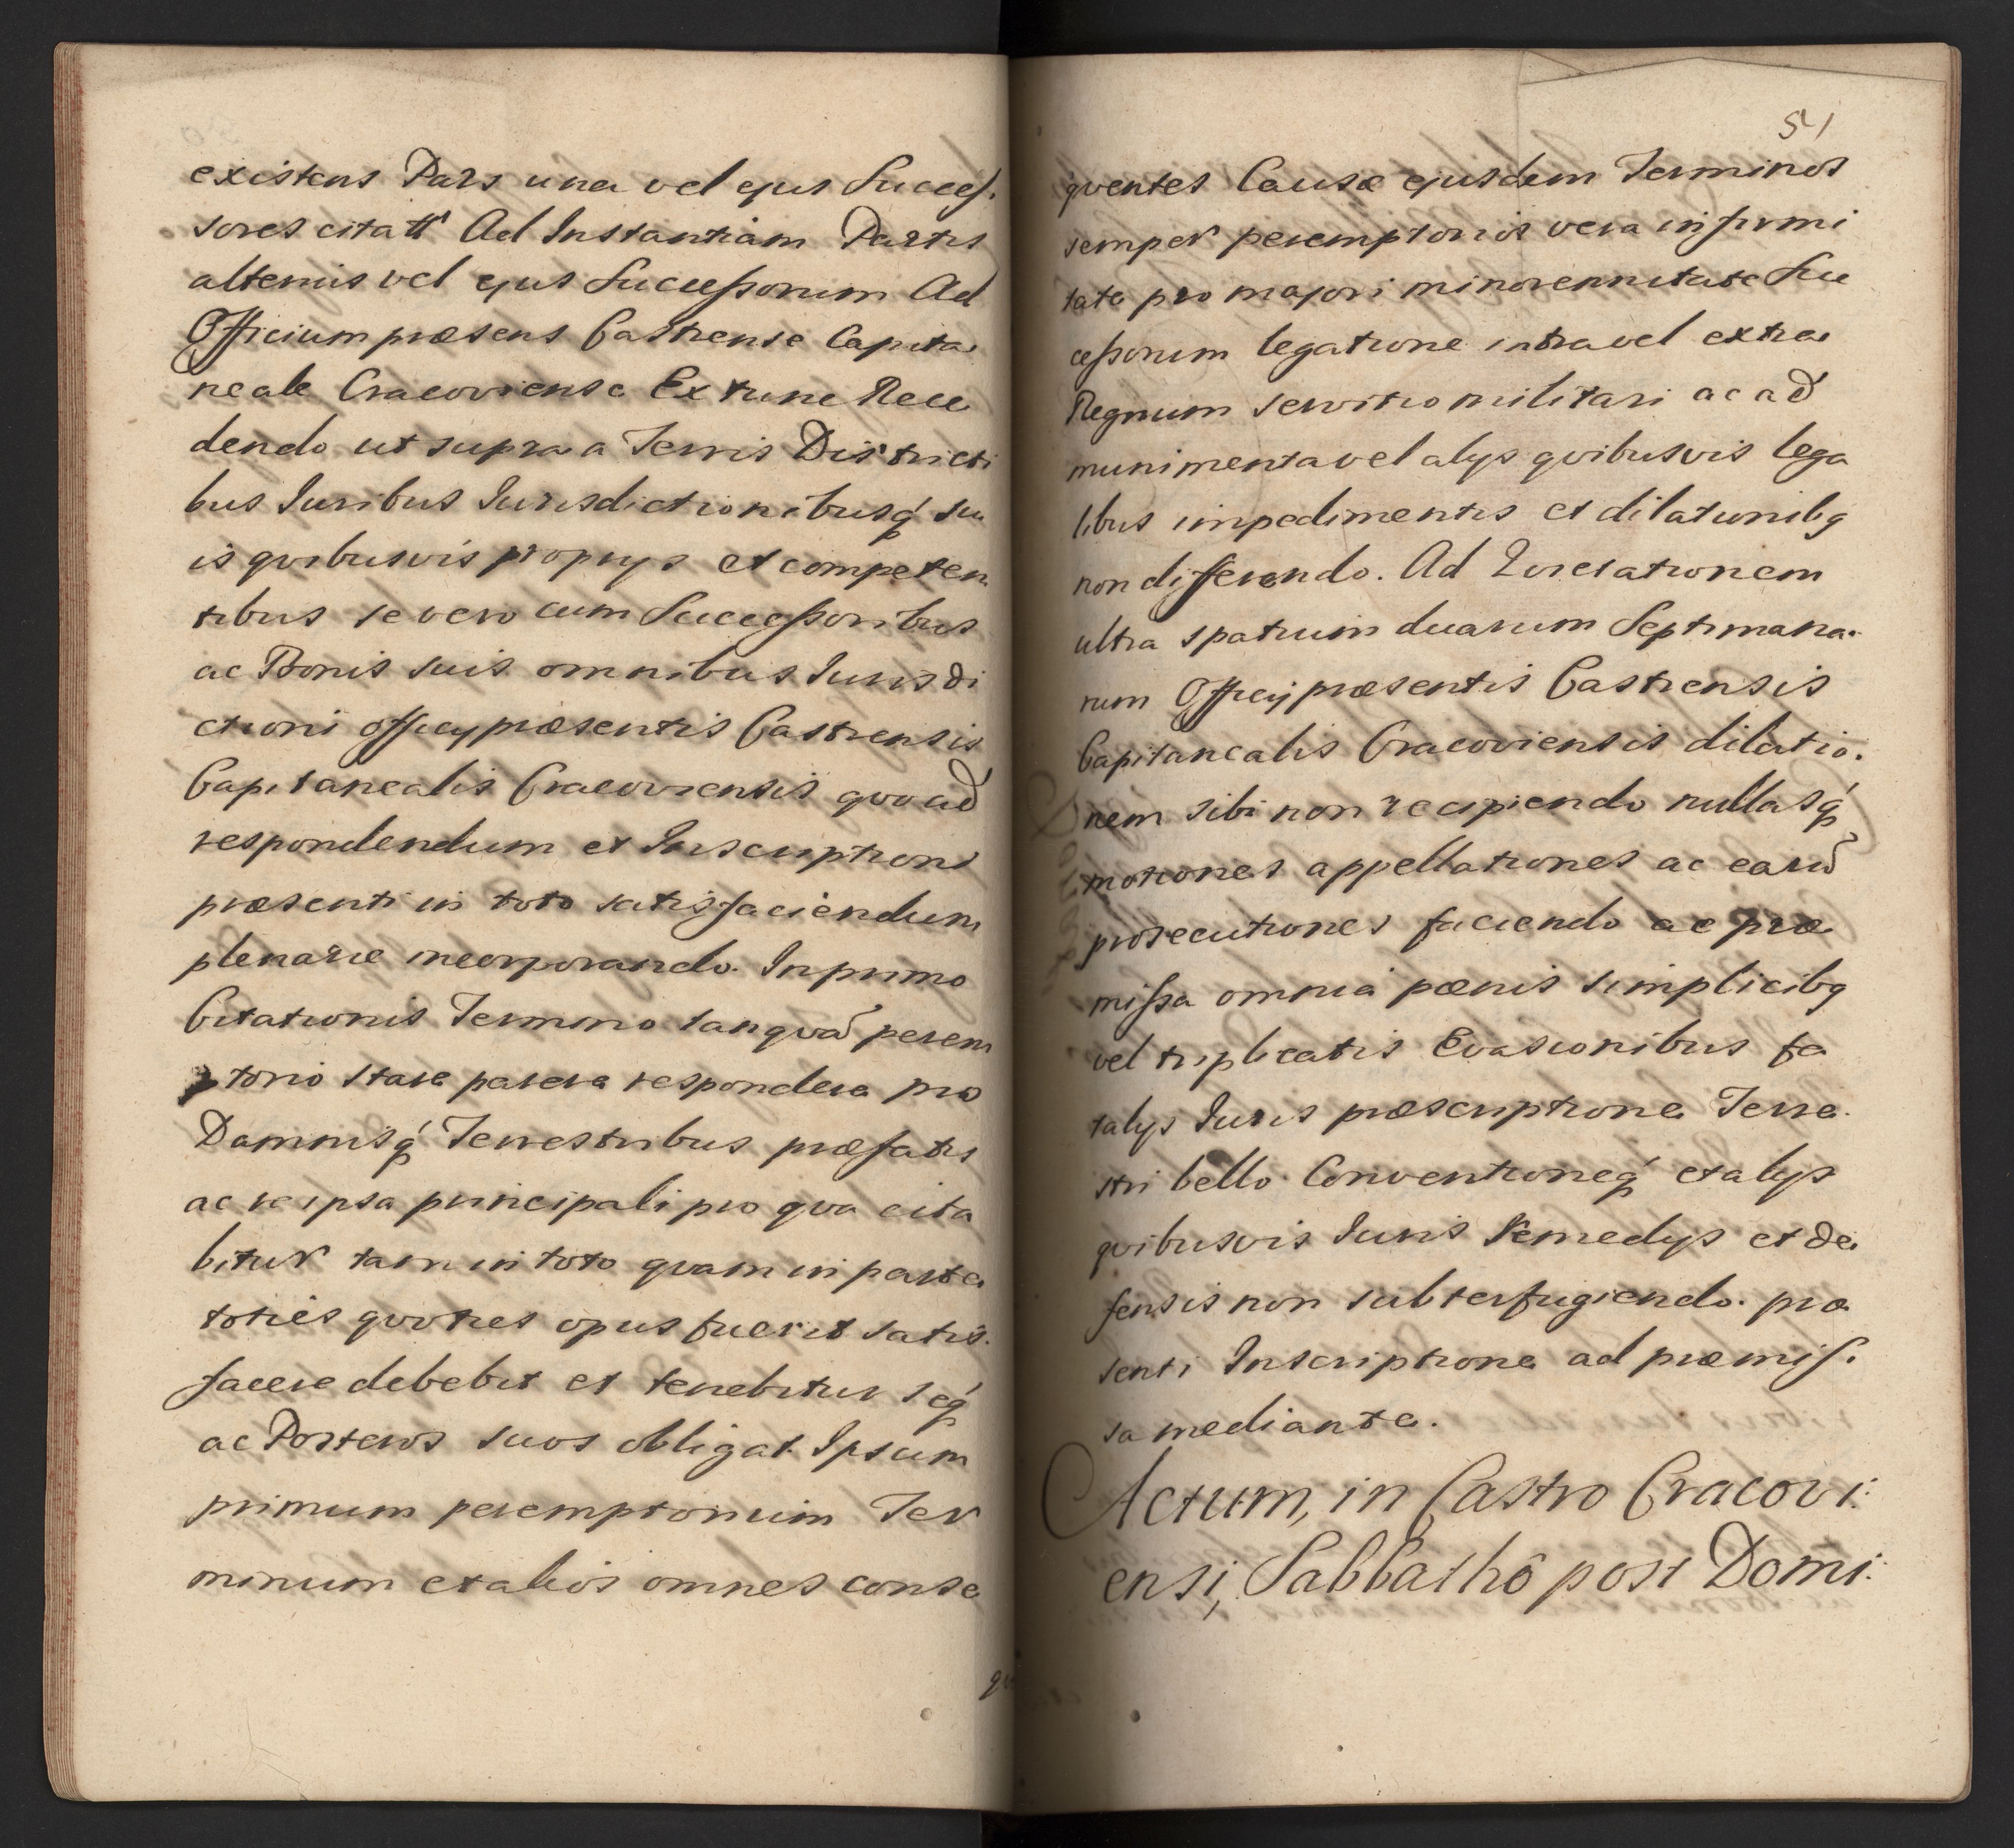 existens Pars una vel ejus Succes.
sores citatt Ad Instantiam Partis
alterius vel ejus Successorum Ad
Officium præsens Castrense Capita
neale Cracoviense Ex tunc Rece
dendo ut supra a Terris Districti
bus Iuribus Iurisdictionibusq́ su
is qvibusvis proprys et competen
tibus se vero cum Successoribus
ac Bonis suis omnibus Iurisdi
ctioni officy præsentis Castrensis
Capitanealis Cracoviensis qvo ad
respondendum et Inscriptioni
præsenti in toto satisfaciendum
plenarie incorporando. In primo
Citationis Termino tanqvã perem
ptorio stare parere respondere pro
Damnisq́ Terrestribus præfatis
ac re ipsa principali pro qva cita
bitur tam in toto qvam in parte
toties qvoties opus fuerit satis.
facere debebit et tenebitur seq́
ac Posteros suos obligat Ipsum
primum peremptorium Ter
minum et alios omnes conse
qv
51
qventes Causæ ejusdem Terminos
semper peremptorios vera infirmi
tate pro majori minorennitate Suc
cessorum legatione intra vel extra
Regnum servitio militari ac ad
munimenta vel alys qvibusvis lega
libus impedimentis et dilationibq
non differendo. Ad
ultra spatium duarum Septimana.
rum Officij præsentis Castrensis
Capitanealis Cracoviensis dilatio.
nem sibi non recipiendo nullasq́
motiones appellationes ac earũ
prosecutiones faciendo ac præ
missa omnia pœnis simplicibq
vel triplicatis Evasionibus fa
talys Iuris præscriptione Terre.
stri bello Conventioneq́ et alys
qvibusvis Iuris Remedys et de
fensis non subterfugiendo. præ
senti Inscriptione ad præmis.
sa mediante.
Actum, in Castro Cracovi:
ensi, Sabbathô post Domi: